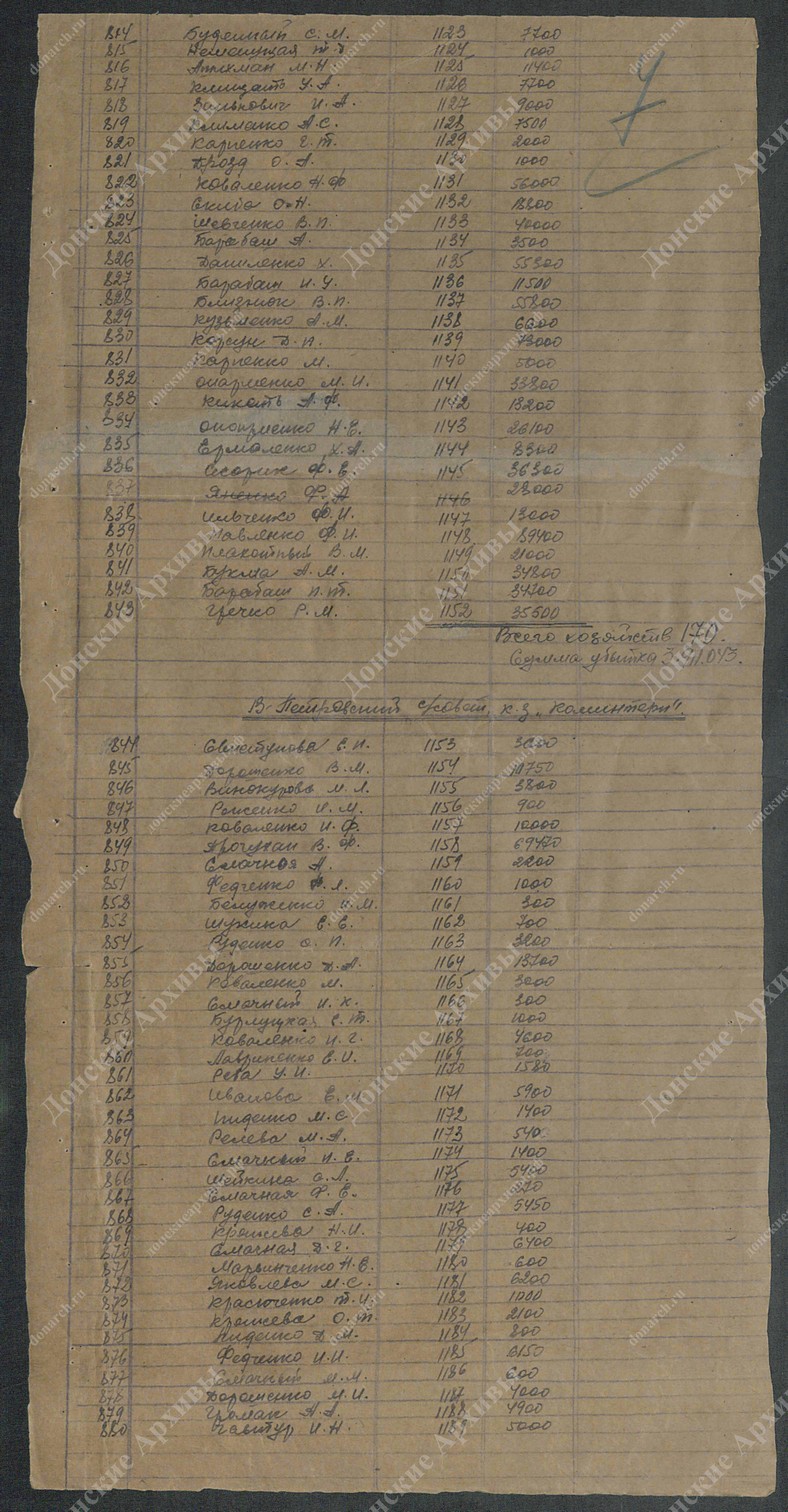 814 Буделный С. М. 1123 7700
815 1124 1000
816 М. Н. 1125 11400
817 У. А. 1126 7700
818 Зинькович И. А. 1127 9600
819 Клименко А. С. 1128 7500
820 Карпенко Е. Т. 1129 2000
821 Дрозд О. А. 1130 1000
822 Коваленко Н. Ф 1131 56000
823 Скиба О. Н. 1132
824 Шевченко В. П. 1133 40000
825 Барабаш А. 1134 3500
826 Даниленко Х. 1135 55300
827 Барабаш И. У. 1136 11500
828 Близнюк В. П. 1137 55800
829 Кузьменко А. М. 1138
830 Корсун Д. П. 1139 73000
831 Карпенко М. 1140 5000
832 М. И. 1141 33800
833 Кикоть А. Ф. 1142 13200
834 Н. Е. 1143 26100
835 Ермоленко Х. А. 1144 8300
836 Скорик Ф. Е. 1145 36300
837 Яненко Ф. А 1146 28000
838 Ильченко Ф. И. 1147 13000
839 Павленко Ф. И. 1148 89400
840 Плахотный В. М. 1149 21000
841 А. М. 1150 34800
842 Барабаш П. Т. 1151 34700
843 Гречко Р. М. 1152 35600
Всего хозяйств 170.
Сумма убытка
В-Петровский с/совет, к-з „Коминтерн".
844 Евстунова Е. П. 1153
845 Дорошенко В. М. 1154
846 Винокурова М. Л. 1155 3800
847 И. М. 1156 900
848 Коваленко И. Ф. 1157 10000
849 В. Ф. 1158 69470
850 Смачная А. 1159
851 Федченко 1160 1000
852 И. М. 1161 300
853 Шукина Е. Е. 1162 700
854 Руденко О. П. 1163 3200
855 Дорошенко Д. А. 1164 13700
856 Коваленко М. 1165 3000
857 Смачный И. К. 1166 300
858 Бурлуцкая Е. Т. 1167 1000
859 Коваленко И. Г. 1168 4600
860 Лавриненко Е. И. 1169 700
861 Рева У. И. 1170 1580
862 Иванова Е. И. 1171 5900
863 М. С 1172 1400
864 Релева М. А. 1173 540
865 Смачный П. Е. 1174 1400
866 Шейкина О. А. 1175 5400
867 Смачная Ф. Е. 1176
868 Руденко С. А. 1177 5450
869 Н. И. 1178 400
870 Смачная Д. Г. 1179 6400
871 Марьинченко Н. Е. 1180 600
872 Яковлева М. С. 1181 6200
873 Красюченко Т. И. 1182 1000
874 О. Т. 1183 2100
875 Д. М. 1184 800
876 Федченко И. И. 1185
877 Смачный М. М. 1186 600
878 Дорошенко М. И. 1187 4000
879 А. А. 1188 4900
880 И. Н. 1189 5000
Донские Архивы
donarch.ru